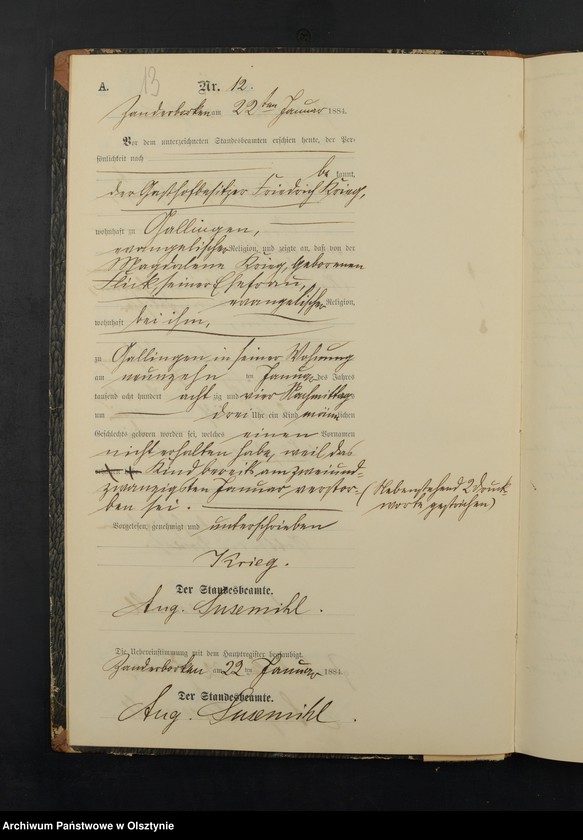 A.
13
Nr. 12.
Zanderborken am 22ten Januar 1884.
Vor dem unterzeichneten Standesbeamten erschien heute, der Per-
sönlichkeit nach
be kannt,
der Gasthofbesitzer Friedrich Krieg,
wohnhaft zu Gallingen,
evangelischer Religion, und zeigte an, daß von der
Magdalene Krieg, geborenen
Flick, seiner Ehefrau,
evangelischer Religion,
wohnhaft bei ihm,
zu Gallingen in seiner Wohnung
am neunzehn ten Januar des Jahres
tausend acht hundert acht zig und vier Nachmittags
um drei Uhr ein Kind männlichen
Geschlechts geboren worden sei, welches einen Vornamen
nicht erhalten habe, weil das
Kind bereits am zweiund-
zwanzigsten Januar verstor-
ben sei.
(Nebenstehend 2 Druck-
worte gestrichen)
Vorgelesen, genehmigt und unterschrieben
Krieg.
Der Standesbeamte.
Aug. Susemihl.
Die Uebereinstimmung mit dem Hauptregister beglaubigt.
Zanderborken am 22 ten Januar 1884.
Der Standesbeamte.
Aug. Susemihl.
Archiwum Państwowe w Olsztynie